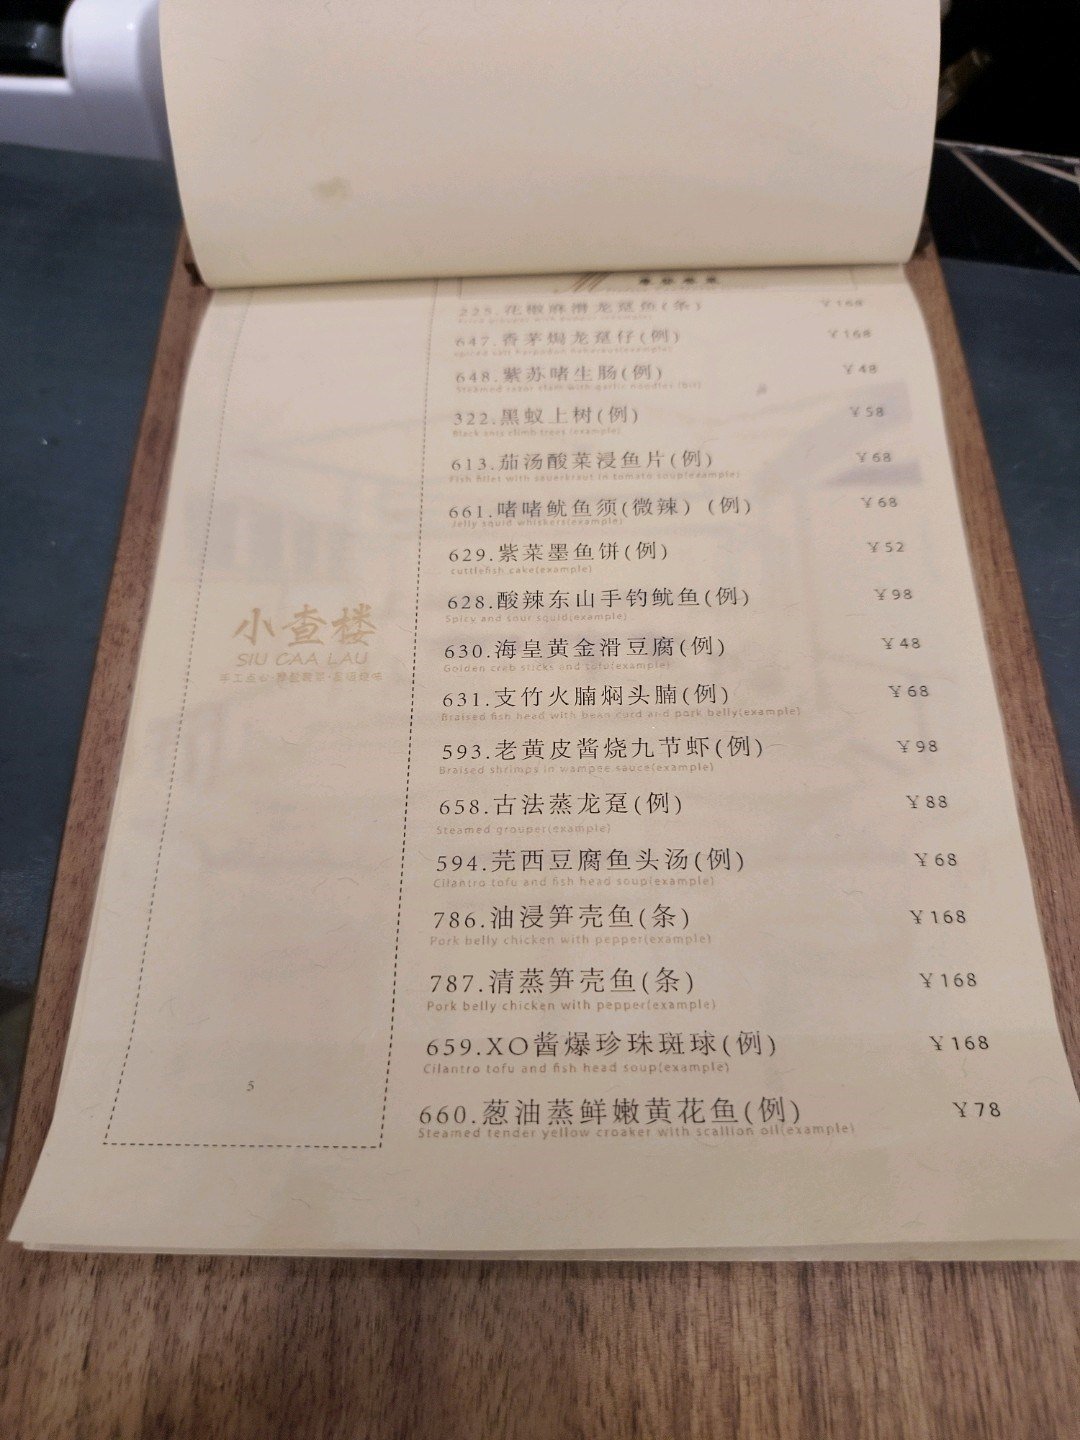 225.花椒麻滑龙趸鱼(条) ¥168
647.香茅焗龙趸仔(例) ¥168
648.紫苏啫生肠(例) ¥48
Steamed razor clam with garlic noodles (bit)
322.黑蚁上树(例) ¥58
Black ants climb trees (example)
613.茄汤酸菜浸鱼片(例) ¥68
Fish fillet with sauerkraut in tomato soup(example)
661.啫啫鱿鱼须(微辣) (例) ¥68
Jelly squid whiskers(example)
629.紫菜墨鱼饼(例) ¥52
cuttlefish cake(example)
628.酸辣东山手钓鱿鱼(例) ¥98
Spicy and sour squid(example)
630.海皇黄金滑豆腐(例) ¥48
Golden crab sticks and tofu(example)
631.支竹火腩焖头腩(例) ¥68
Braised fish head with bean curd and pork belly(example)
593.老黄皮酱烧九节虾(例) ¥98
Braised shrimps in wampee sauce(example)
658.古法蒸龙趸(例) ¥88
Steamed grouper(example)
594.芫西豆腐鱼头汤(例) ¥68
Cilantro tofu and fish head soup(example)
786.油浸笋壳鱼(条) ¥168
Pork belly chicken with pepper(example)
787.清蒸笋壳鱼(条) ¥168
Pork belly chicken with pepper(example)
659.XO酱爆珍珠斑球(例) ¥168
Cilantro tofu and fish head soup(example)
660.葱油蒸鲜嫩黄花鱼(例) ¥78
Steamed tender yellow croaker with scallion oil(example)
小查楼
SIU CAA LAU
5